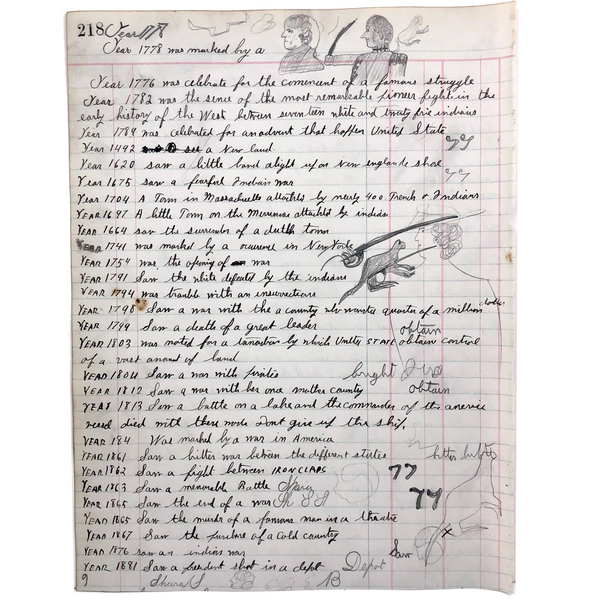 218 Year 1778
Year 1778 was marked by a
Year 1776 was celebrate for the comencent of a famous struggle
Year 1782 was the scene of the most remarkable pioneer fight in the
early history of the West between seventeen white and twenty five indians
Year 1789 was celebrated for an advent that happen United State
Year 1492 see a New land
Year 1620 saw a little band alight upon New englands shore
Year 1675 saw a fearful Indian war
Year 1704 A Town in Massachusetts attackted by nearly 400 French & Indians
YEAR 1697 A little Town on the Merrimac attackted by indian
YEAR 1664 saw the surrender of a dutch town
YEAR 1741 was marked by a occurence in New York
YEAR 1754 was the opening of war
YEAR 1791 Saw the white defeated by the indians
YEAR 1794 was trouble with an insurrections
YEAR 1798 Saw a war with the a county who wanted quarter of a million dollar
YEAR 1799 Saw a death of a great leader
obtain
YEAR 1803 was noted for a transaction by which Unity STATE obtain control
of a vast amount of land
YEAR 1804 Saw a war with pirates
bright
YEAR 1812 Saw a war with her once mother county
obtain
YEAR 1813 Saw a battle on a lake and the commander of the america
vessel died with these words Dont give up the ship.
YEAR 184 Was marked by a war in America
YEAR 1861 Saw a bitter war between the different states
YEAR 1862 Saw a fight between IRON CLADS
77
YEAR 1863 Saw a memorable Battle
YEAR 1865 Saw the end of a war
77
YEAR 1865 Saw the murder of a famous man in a theatre
YEAR 1867 Saw the purchase of a cold country
YEAR 1876 saw an indians war
Saw
YEAR 1881 Saw a president shot in a depot
Depot
9
B
B